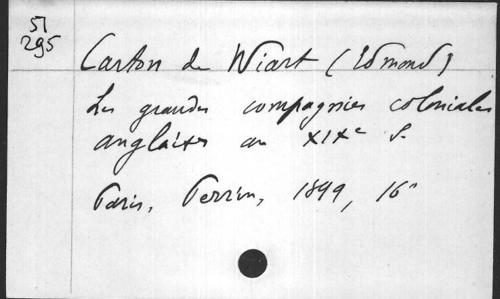 51
295
Carton de Wiart (Edmond)
Les grandes compagnies coloniales
anglaises au XIXe s.
Paris, Perrin, 1899, 16°